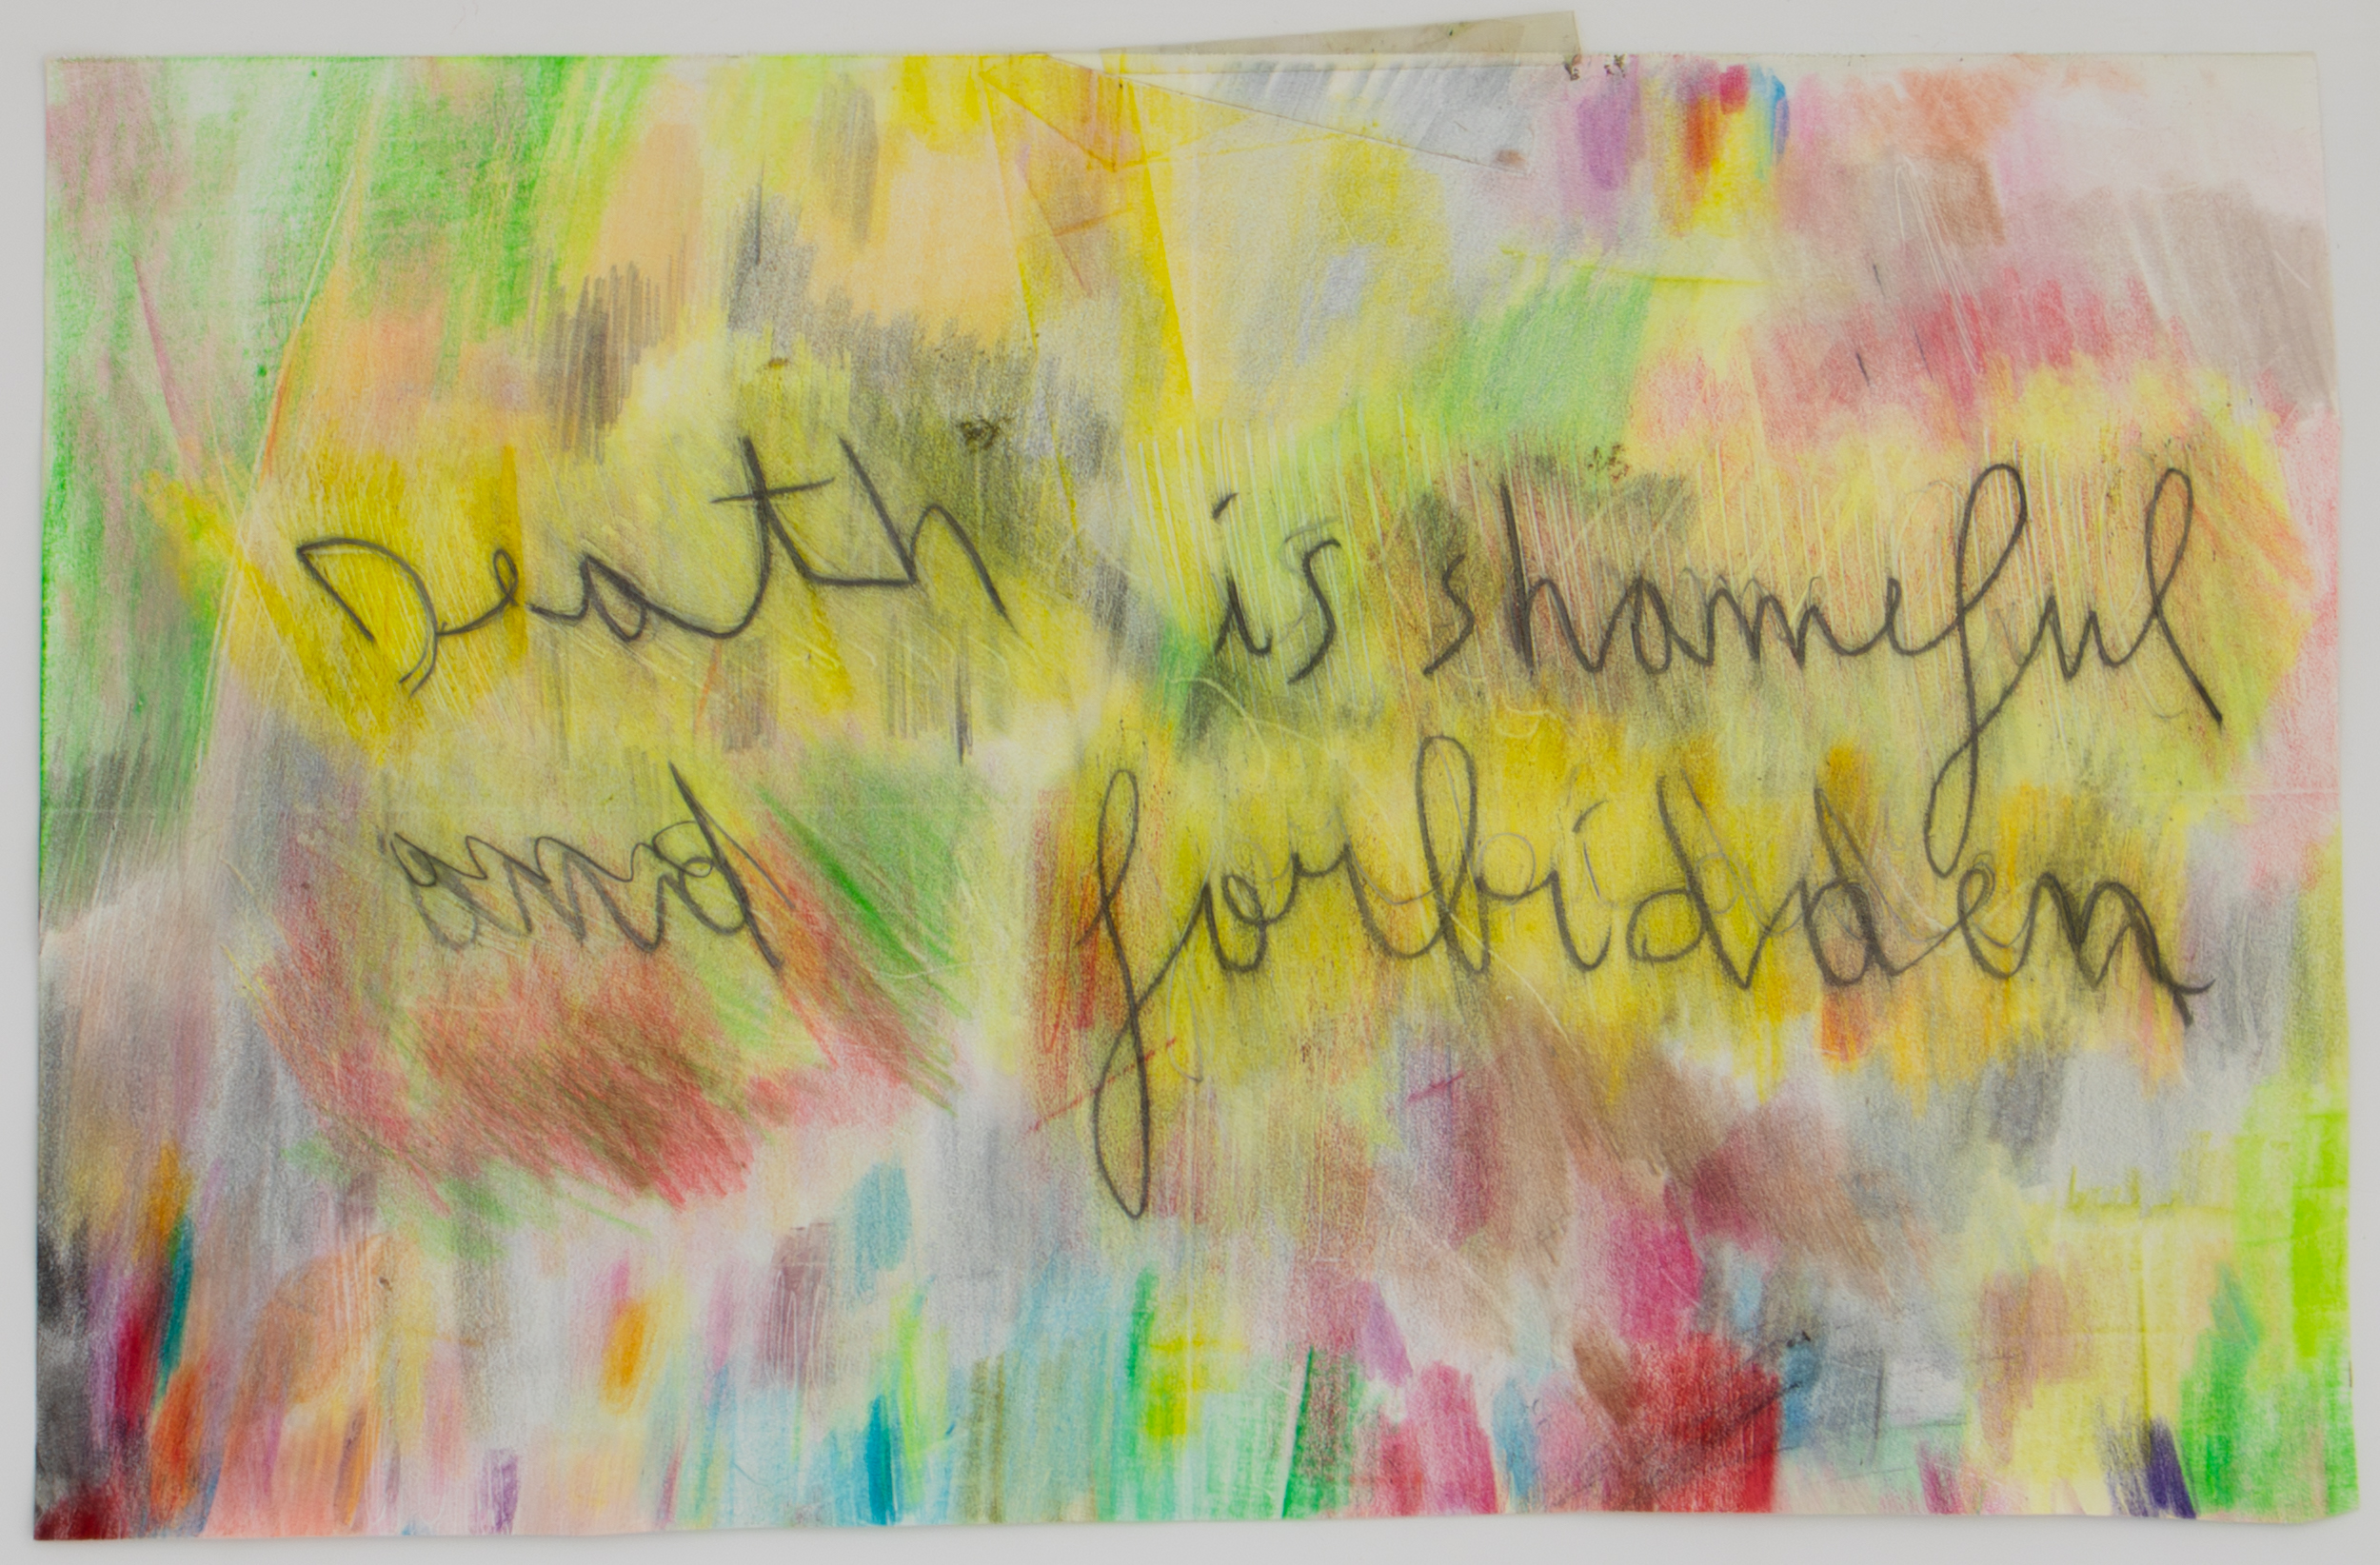 Death is shameful
and forbidden